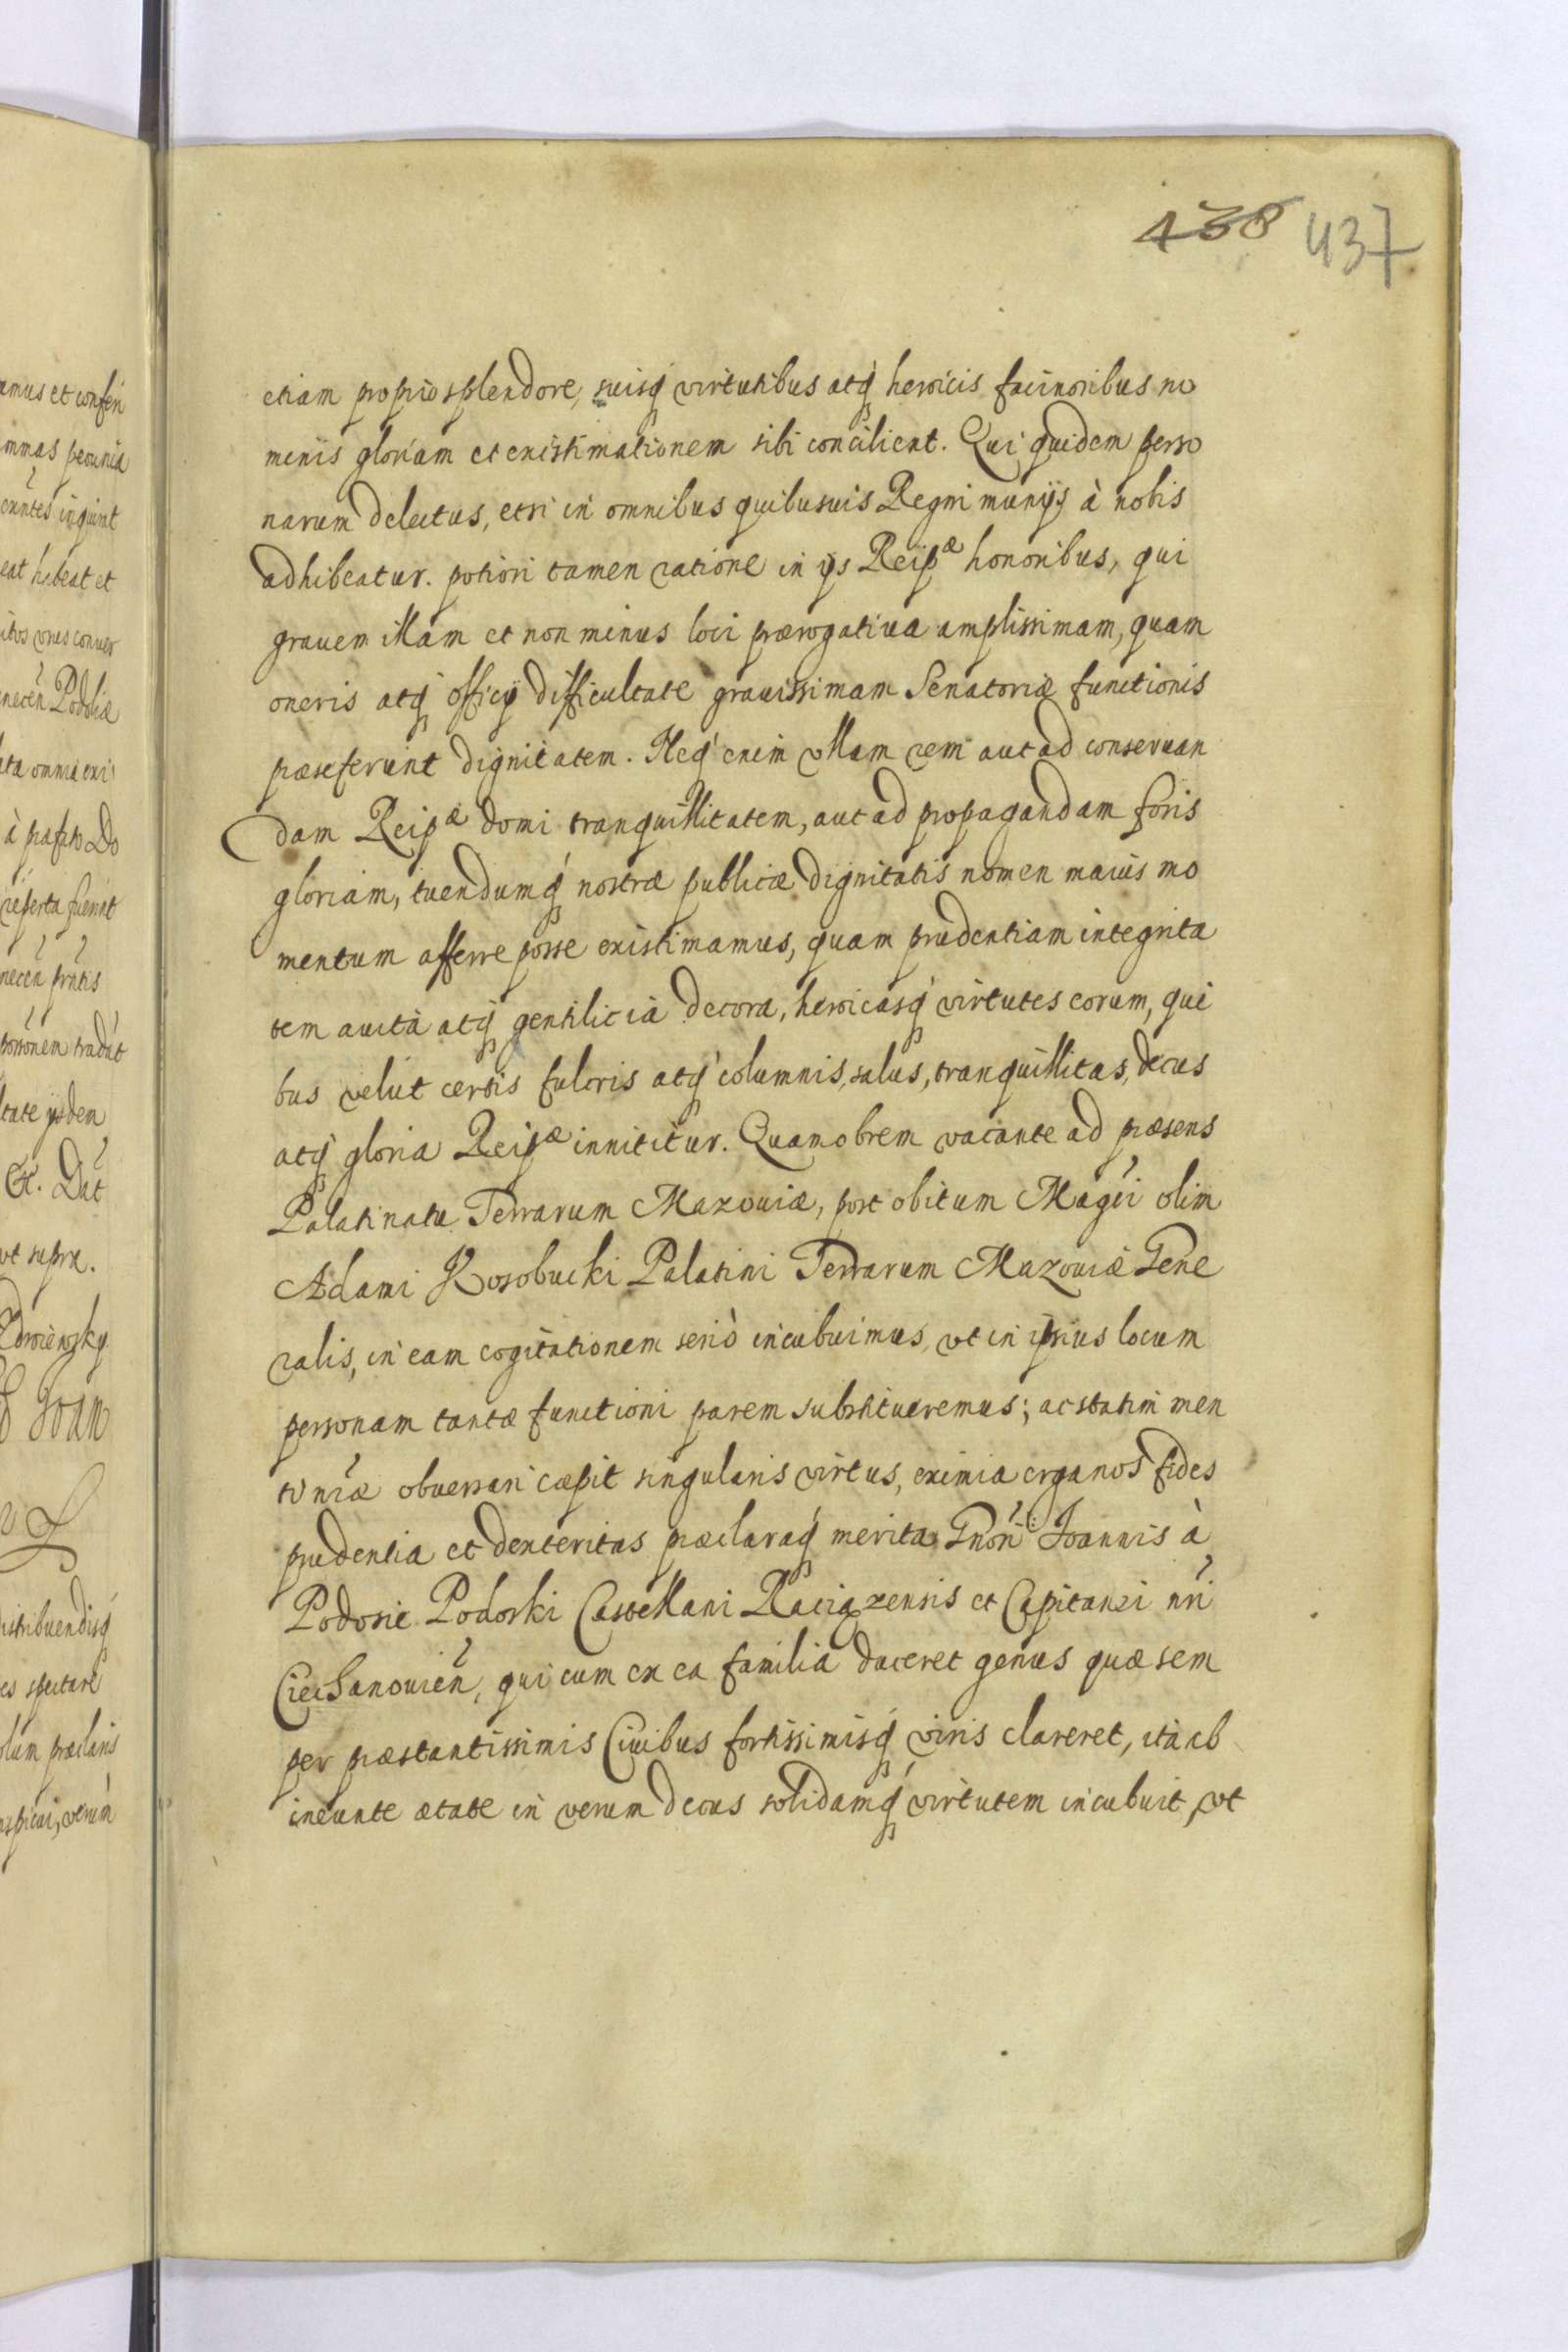 438 437
etiam proprio splendore, suisq́ virtutibus atq́ heroicis facinoribus no
minis gloriam et existimationem sibi concilient. Qui quidem perso
narum delectus, etsi in omnibus quibusuis Regni munijs à nobis
adhibeatur. potiori tamen ratione in ijs Reipæ honoribus, qui
grauem illam et non minus loci prærogatiua amplissimam, quam
oneris atq́ officij difficultate grauissimam Senatoriæ functionis
præseferunt dignitatem. Neq́ enim vllam rem aut ad conseruan
dam Reipæ domi tranquillitatem, aut ad propagandam foris
gloriam, tuendumq́ nostræ publicæ dignitatis nomen maius mo
mentum afferre posse existimamus, quam prudentiam integrita
tem auita atq́ gentilicia decora, heroicasq́ virtutes eorum, qui
bus velut certis fulcris atq́ columnis, salus, tranquillitas, decus
atq́ gloria Reipæ innititur. Quamobrem vacante ad præsens
Palatinatu Terrarum Mazouiæ, post obitum Magci olim
Adami Kosobucki Palatini Terrarum Mazouiæ Gene
ralis, in eam cogitationem seriò incubuimus, vt in ipsius locum
personam tantæ functioni parem substitueremus; ac statim men
ti nræ obuersari cæpit singularis virtus, eximia erga nos fides
prudentia et dexteritas præclaraq́ merita Gnon: Joannis à
Podosie Podoski Castellani Raciązensis et Capitanei nri
Ciechanouien, qui cum ex ea familia duceret genus quæ sem
per præstantissimis Ciuibus fortissimisq́ viris clareret, ita ab
ineunte ætate in verum decus solidamq́ virtutem incubuit, vt